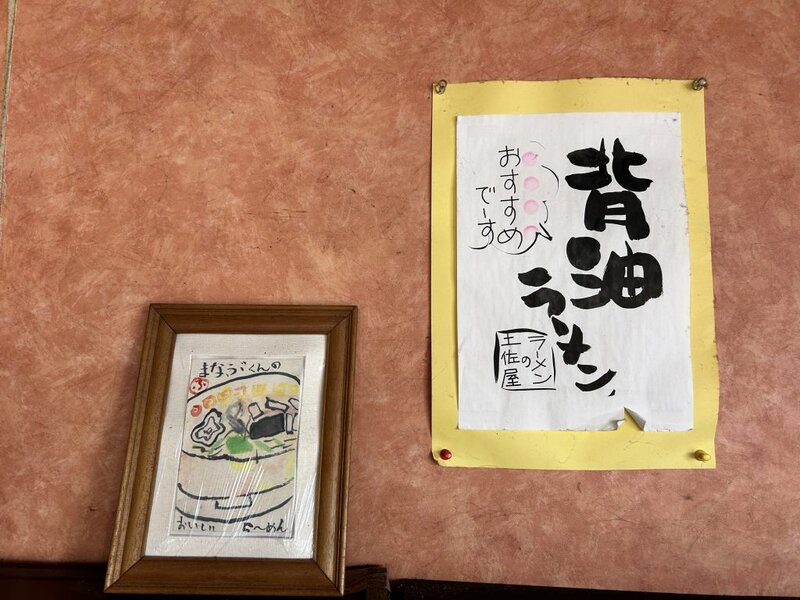 背油
ラーメン
おすすめ
でーす
ラーメン
の
土佐屋
まなぶくんの
おいしい
らーめん